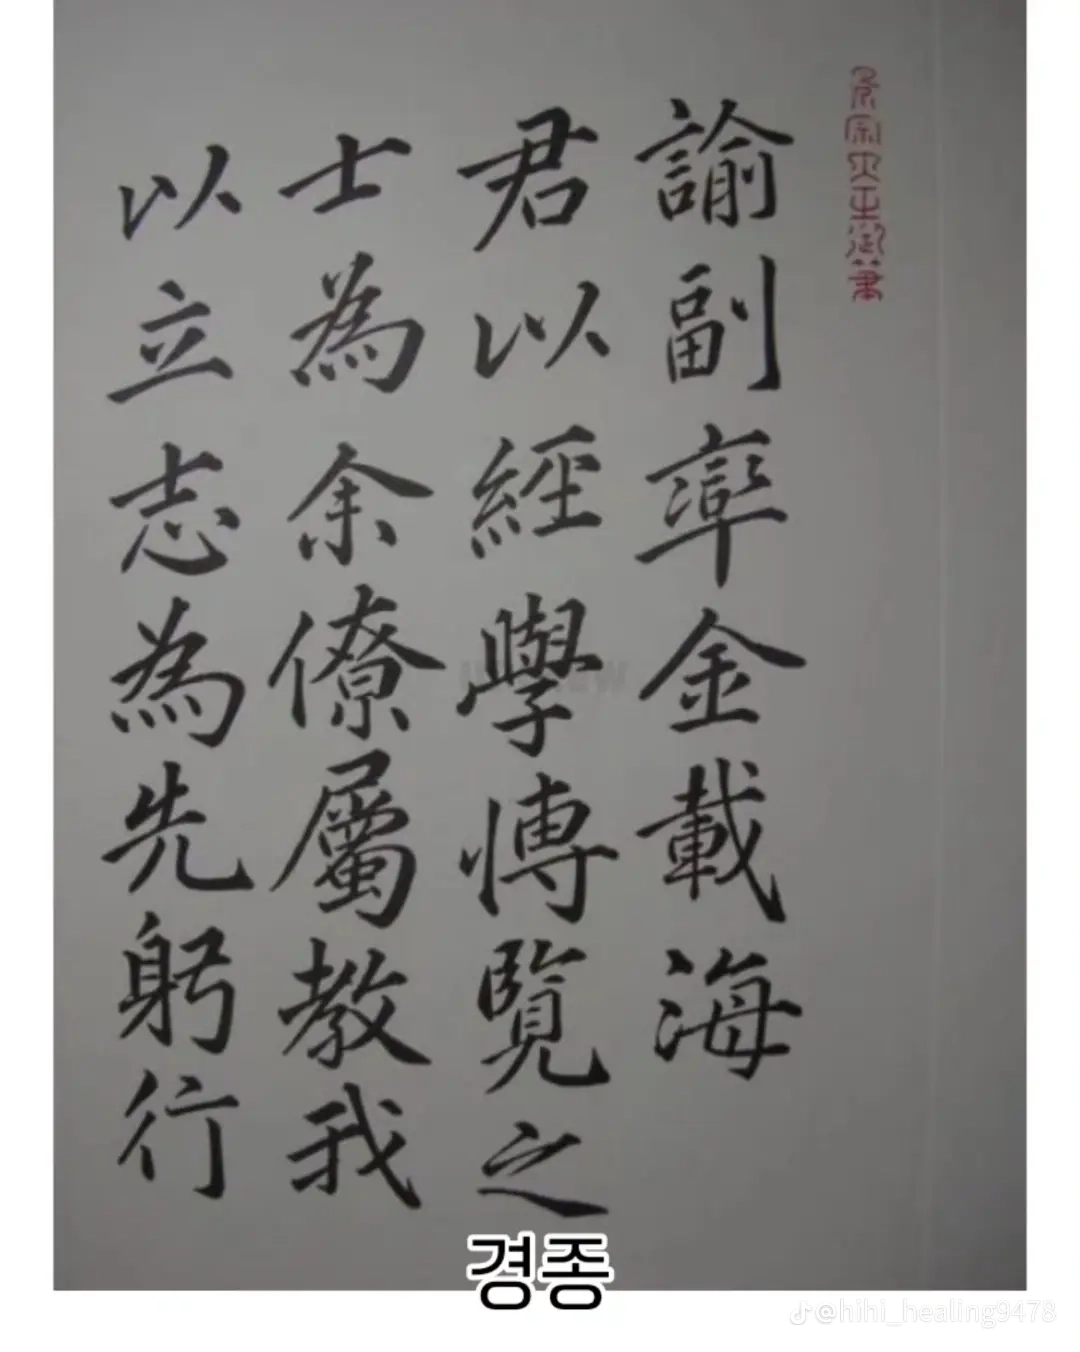 宗大王御筆
諭副率金載海
君以經學愽覽之
士為余僚屬教我
以立志為先躬行
경종
@hihi_healing9478